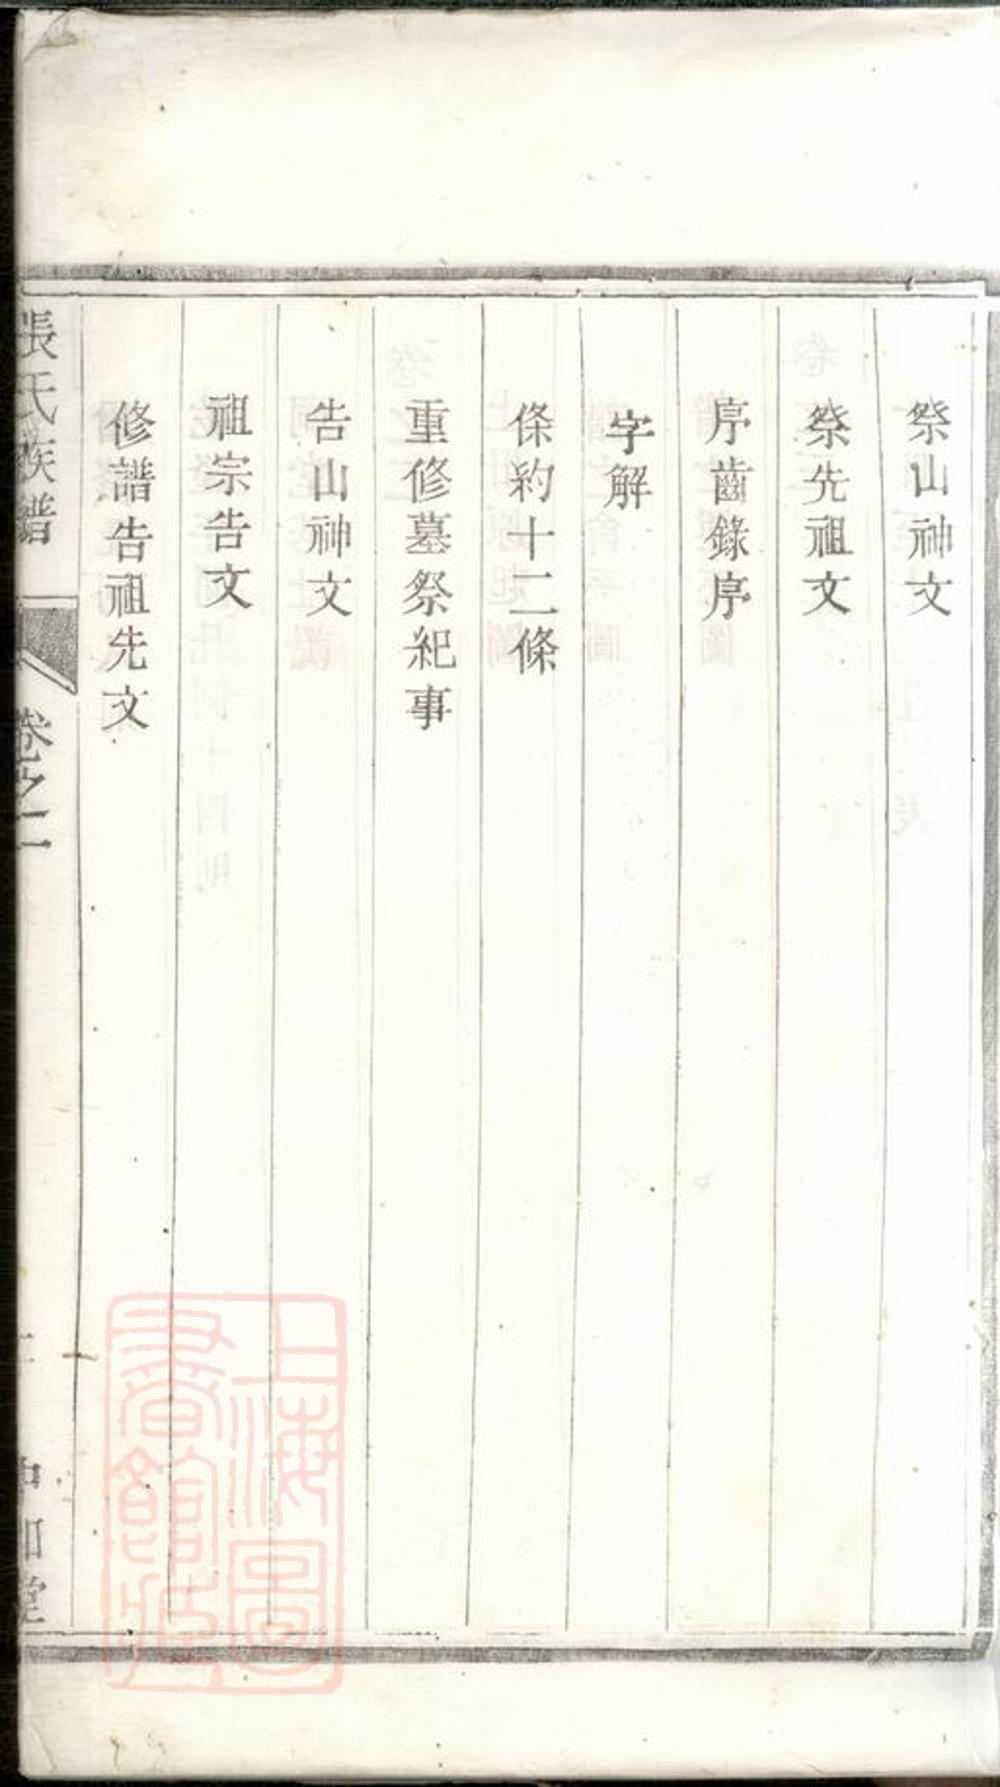 祭山神文
祭先祖文
序齒錄序
字解
條約十二條
重修墓祭紀事
告山神文
祖宗告文
修譜告祖先文
張氏族譜
卷之一
中和堂
上海圖書館藏